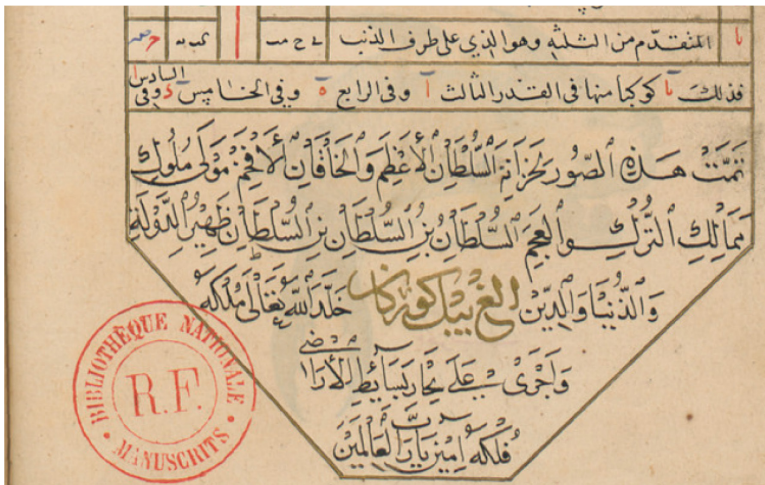 يا المتقدم من الثلثه وهو الذي على طرف الذنب
فذلك يا كوكبا منها فى القدر الثالث ا وفى الرابع ه وفى الخامس وفى السادس
تمت هذه الصور لخزانة السلطان الأعظم والخاقان الأفخم مولى ملوك
ممالك الترك والعجم السلطان بن السلطان بن السلطان ظهير الدولة
والدنيا والدين الغ بيك كوركان خلد الله تعالى ملكه
وأجرى على بحار بسائط الأراضى
فلكه امين يا رب العالمين
BIBLIOTHÈQUE NATIONALE
R.F.
MANUSCRITS